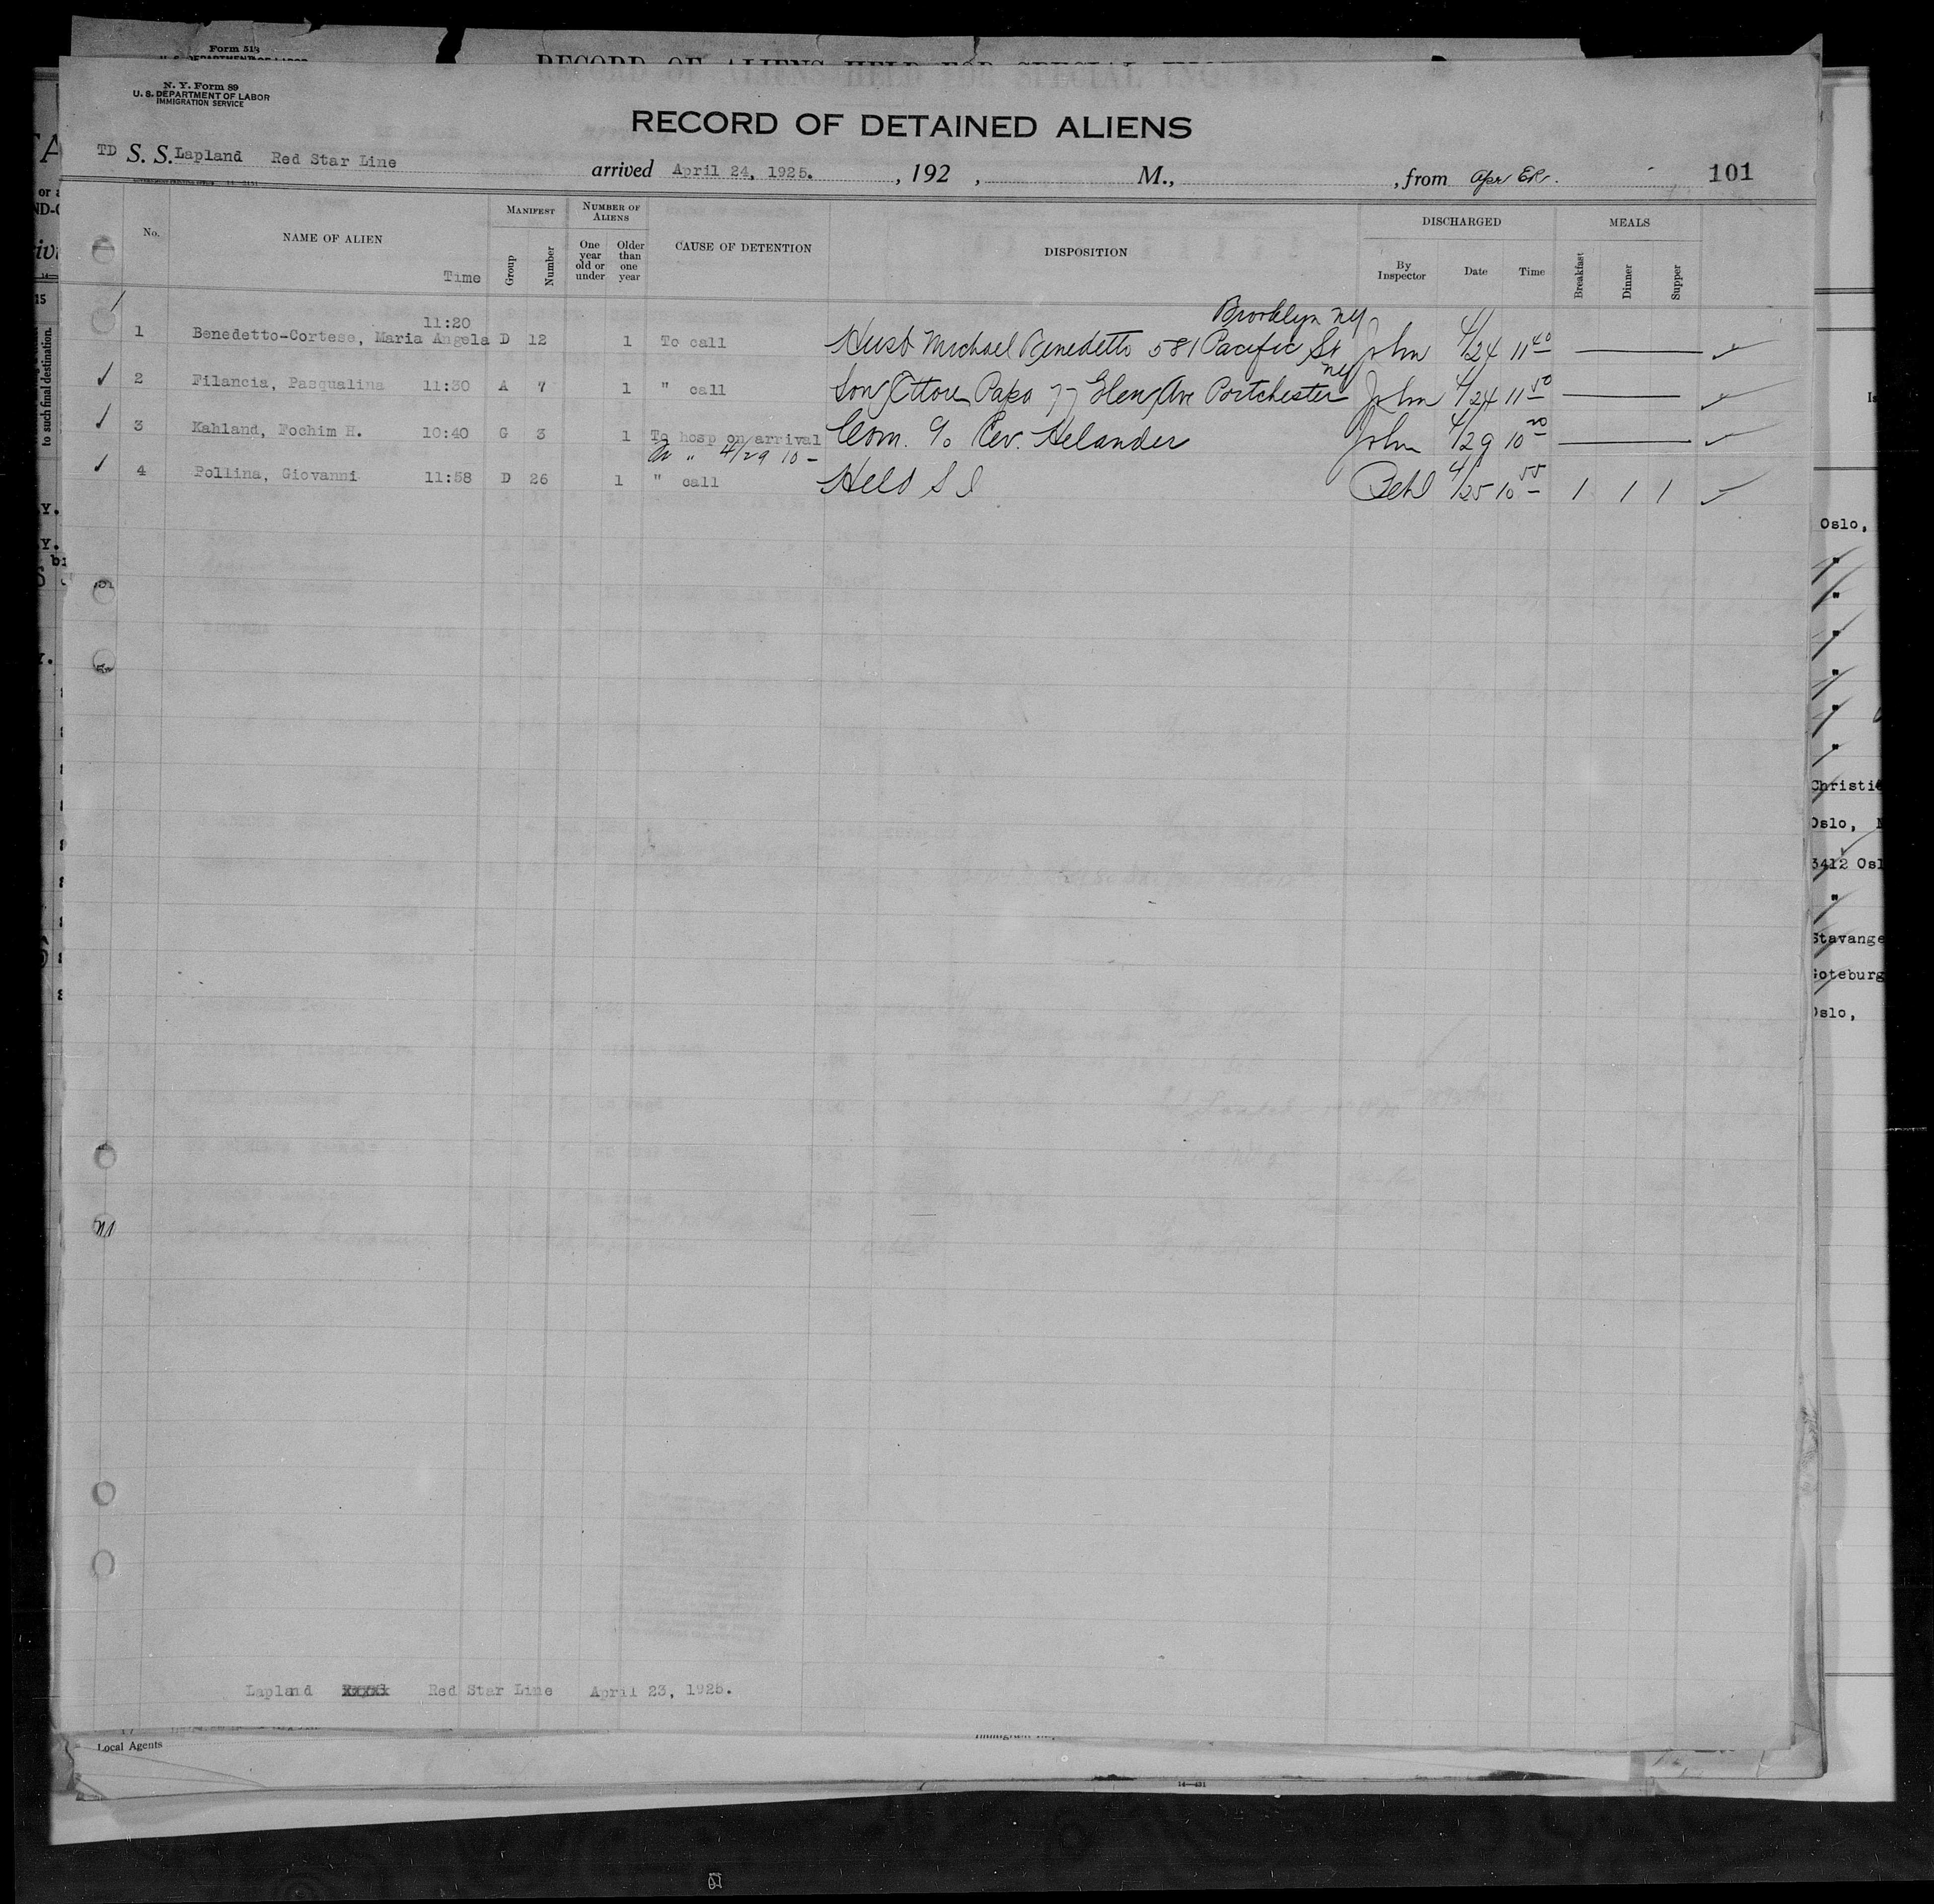 Form 518
U. S. DEPARTMENT OF LABOR
RECORD OF ALIENS HELD FOR SPECIAL INQUIRY
N. Y. Form 89
U. S. DEPARTMENT OF LABOR
IMMIGRATION SERVICE
RECORD OF DETAINED ALIENS
TD S. S. Lapland Red Star Line arrived April 24, 1925. , 192 , M., , from 101
No. NAME OF ALIEN Time MANIFEST Group Number NUMBER OF ALIENS One year old or under Older than one year CAUSE OF DETENTION DISPOSITION DISCHARGED By Inspector Date Time MEALS Breakfast Dinner Supper
11:20 Brooklyn NY
1 Benedetto-Cortese, Maria Angela D 12 1 To call Husb Michael Benedetto 581 Pacific St John 4/24 11 40
2 Filancia, Pasqualina 11:30 A 7 1 " call Son Ettore Papa 77 Glen Ave Portchester NY John 4/24 11 50
3 Kahland, Fochim H. 10:40 G 3 1 To hosp on arrival Com. c/o Rev. Helander John 4/29 10 20
" 4/29 10 -
4 Pollina, Giovanni 11:58 D 26 1 " call Held S I 4/25 10 55 1 1 1
to such final destination.
Oslo,
"
"
"
"
"
"
Christi
Oslo, N
3412 Osl
"
Stavange
Goteburg
Oslo,
Lapland Red Star Line April 23, 1925.
Local Agents
14—431